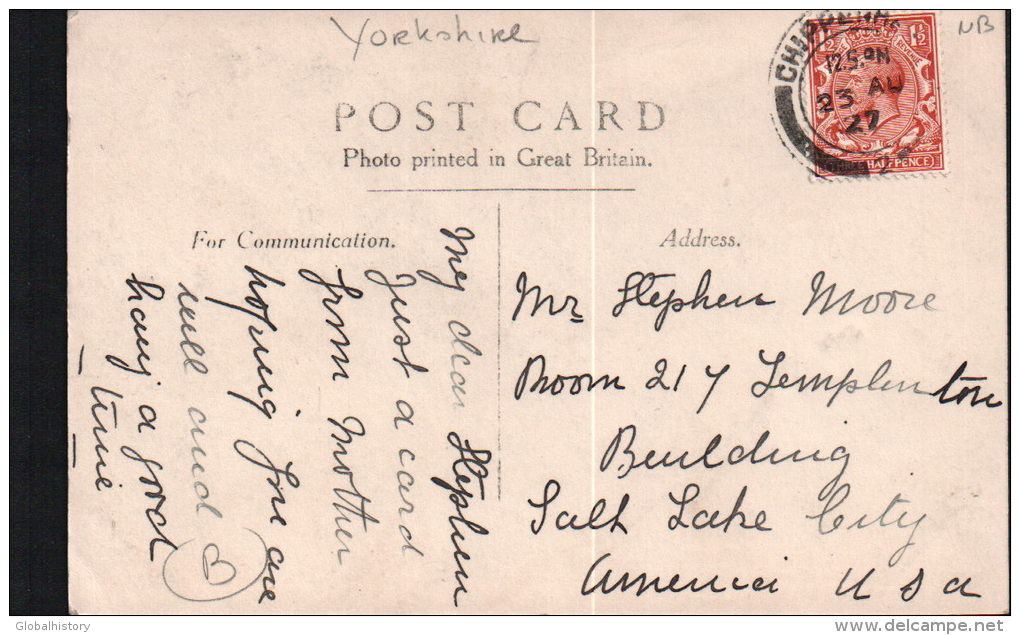 Yorkshire
NB
POST CARD
Photo printed in Great Britain.
CHIPPENHA
12.5 PM
23 AU
27
1½ 1½
HALFPENCE
For Communication.
My dear Stephen
Just a card
from Mother
hoping you are
well and
having a good
time
Address.
Mr Stephen Moore
Room 217 Templeton
Building
Salt Lake City
America USA
Globalhistory
delcampe.net